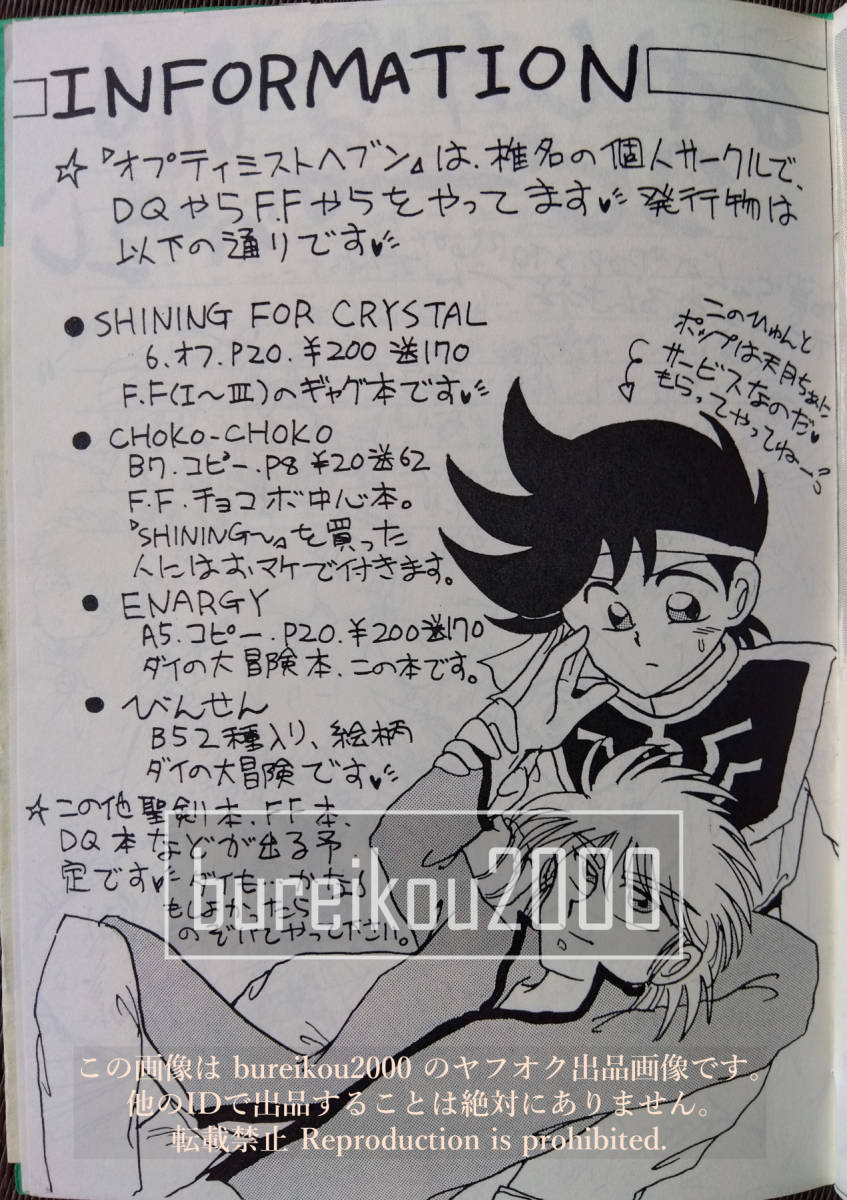 INFORMATION
☆『オプティミストヘブン』は、椎名の個人サークルで、
DQやらF.Fやらをやってます♥ 発行物は
以下の通りです♥
● SHINING FOR CRYSTAL
6.オフ.P20.¥200 送170
F.F(I〜III)のギャグ本です♥
● CHOKO-CHOKO
B7.コピー.P8 ¥20送62
F.F.チョコボ中心本。
『SHINING〜』を買った
人にはオマケで付きます。
● ENARGY
A5.コピー.P20.¥200送170
ダイの大冒険本、この本です。
● びんせん
B5 2種入り、絵柄
ダイの大冒険です♥
このひゅんと
ポップは天月ちゃんに
サービスなのだ♥
もらってやってねー
☆この他聖剣本、F.F本、
DQ本などが出る予
定です♥
もしよかったら
のぞいてやって下さい。
bureikou2000
この画像は bureikou2000 のヤフオク出品画像です。
他のIDで出品することは絶対にありません。
転載禁止 Reproduction is prohibited.